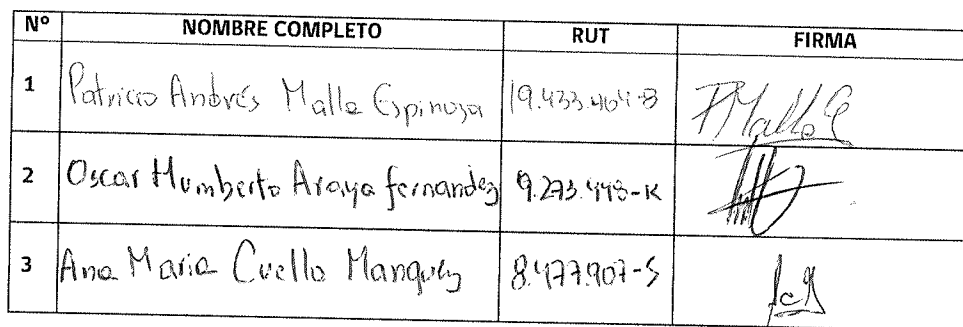 N° NOMBRE COMPLETO RUT FIRMA
1 Patricio Andrés Malla Espinoza 19.433.464-8 PMallaE
2 Oscar Humberto Araya fernandez 9.273.448-K
3 Ana Maria Cuello Manquez 8.477.907-5